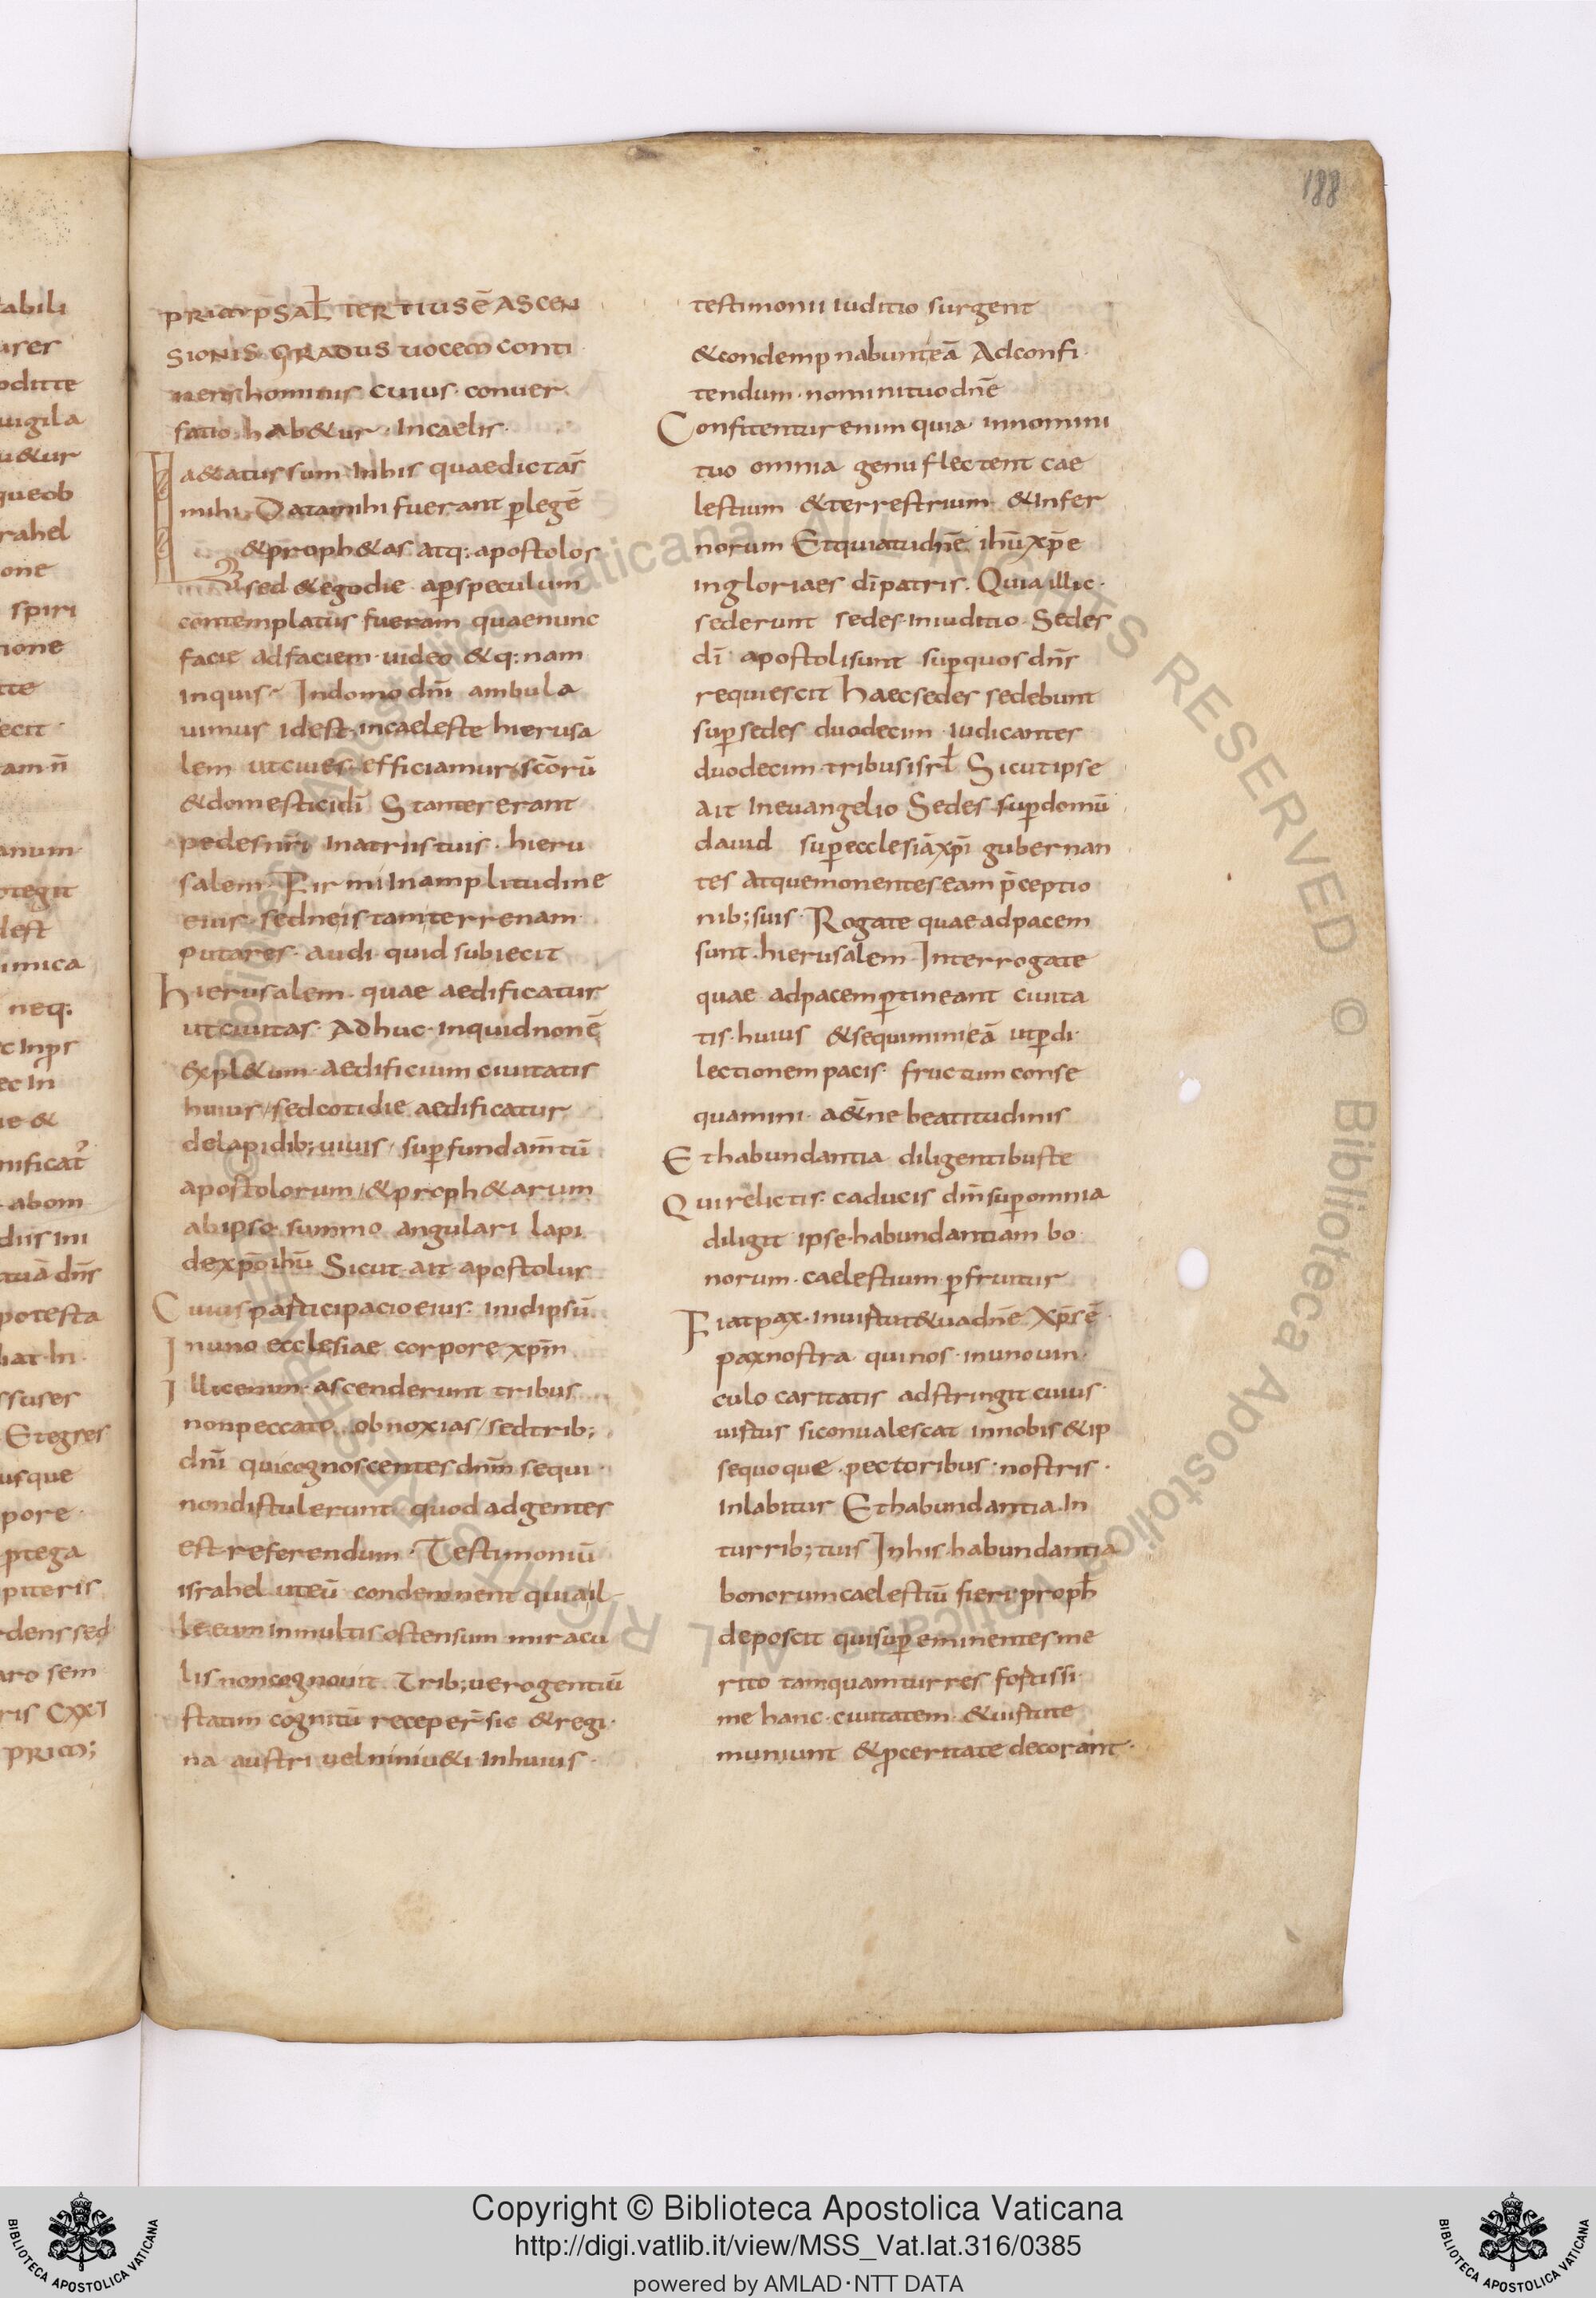 188
PRIM PSAL̄ TERTIUS Ē ASCEN
SIONIS GRADUS UOCEM CONTI
nens hominis cuius conuer
satio hab&ur in caelis
La&atus sum in his quae dicta s̄
mihi Data mihi fuerant p legē
& proph&as atq: apostolos
sed & ego die a p speculum
contemplatus fueram quae nunc
facie ad faciem uideo &q: nam
inquis In domo dn̄i ambula
uimus id est in caeleste hierusa
lem ut ciues efficiamur sc̄orū
& domestici dī Stantes erant
pedes nr̄i in atriis tuis hieru
salem Firmi in amplitudine
eius sed ne istam terrenam
putares audi quid subiecit
hierusalem quae aedificatur
ut ciuitas Adhuc inquid non ē
expl&um aedificium ciuitatis
huius sed cotidie aedificatur
de lapidib; uiuis sup fundam̄tū
apostolorum & proph&arum
ab ipso summo angulari lapi
de xp̄o ih̄u Sicut ait apostolus
Cuius participacio eius in idipsū
In uno ecclesiae corpore xp̄m
Illic enim ascenderunt tribus
non peccato obnoxias sed trib;
dn̄i qui cognoscentes dn̄m sequi
non distulerunt quod ad gentes
est referendum Testimoniū
israhel ut eū condemnent quia il
le eum in multis ostensum miracu
lis non cognouit Trib; uero gentiū
statim cognitū receper̄ sic & regi
na austri uel niniu&i in huius
testimonii iuditio surgent
& condempnabunt eā Ad confi
tendum nomini tuo dn̄e
Confitentur enim quia in nomini
tuo omnia genu flectent cae
lestium & terrestrium & infer
norum Et quia tu dn̄e ih̄u xp̄e
in gloria es dī patris. Quia illic
sederunt sedes in iuditio Sedes
dī apostoli sunt sup quos dn̄s
requiescit haec sedes sedebunt
sup sedes duodecim iudicantes
duodecim tribus isrl̄ Sicut ipse
ait in euangelio Sedes sup domū
dauid sup ecclesiā xp̄i gubernan
tes atque monentes eam p̄ceptio
nib; suis Rogate quae ad pacem
sunt hierusalem Interrogate
quae ad pacem ptineant ciuita
tis huius & sequimini eā ut p di
lectionem pacis fructum conse
quamini a&̄ne beatitudinis
Et habundantia diligentibus te
Qui relictis caducis dm̄ sup omnia
diligit ipse habundantiam bo
norum caelestium pfruitur
Fiat pax in uirtute tua dn̄e xp̄s ē
pax nostra qui nos in uno uin
culo caritatis adstringit cuius
uirtus si conualescat in nobis & ip
se quoque pectoribus nostris
inlabitur Et habundantia in
turrib; tuis In his habundantia
bonorum caelestiū fieri proph̄
deposcit qui sup eminentes me
rito tamquam turres fortissi
me hanc ciuitatem & uirtute
muniunt & pceritate decorant
Copyright © Biblioteca Apostolica Vaticana
http://digi.vatlib.it/view/MSS_Vat.lat.316/0385
powered by AMLAD·NTT DATA
BIBLIOTECA APOSTOLICA VATICANA
BIBLIOTECA APOSTOLICA VATICANA